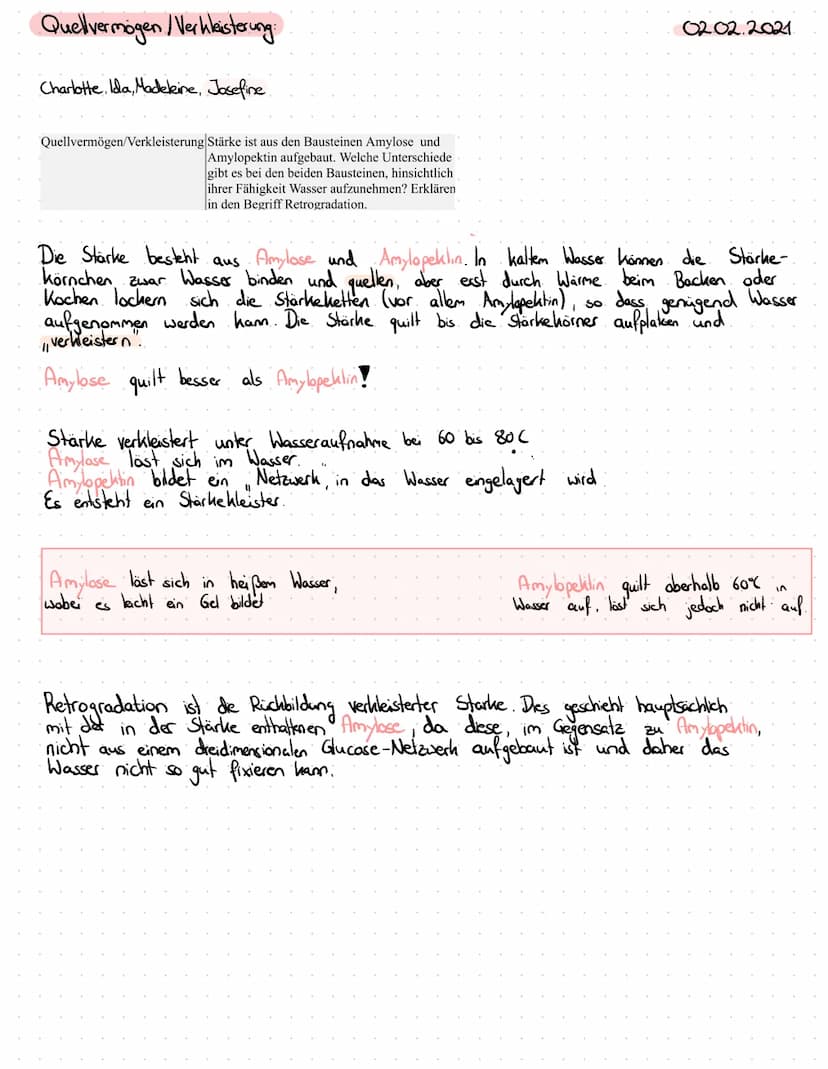 Quellvermögen / Verkleisterung:
02.02.2021
Charlotte, Ida, Madeleine, Josefine
Quellvermögen/Verkleisterung Stärke ist aus den Bausteinen Amylose und
Amylopektin aufgebaut. Welche Unterschiede
gibt es bei den beiden Bausteinen, hinsichtlich
ihrer Fähigkeit Wasser aufzunehmen? Erklären
in den Begriff Retrogradation.
Die Stärke besteht aus Amylose und Amylopektin. In kaltem Wasser können die Stärke-
körnchen zwar Wasser binden und quellen, aber erst durch Wärme beim Backen oder
Kochen lockern sich die Stärkeketten (vor allem Amylopektin), so dass genügend Wasser
aufgenommen werden kann. Die Stärke quillt bis die Stärkekörner aufplatzen und
„verkleistern".
Amylose quillt besser als Amylopektin!
Stärke verkleistert unter Wasseraufnahme bei 60 bis 80 C
Amylose löst sich im Wasser.
Amylopektin bildet ein „Netzwerk", in das Wasser eingelagert wird
Es entsteht ein Stärkekleister.
Amylose löst sich in heißem Wasser,
wobei es leicht ein Gel bildet
Amylopektin quillt oberhalb 60°C in
Wasser auf, löst sich jedoch nicht auf.
Retrogradation ist die Rückbildung verkleisterter Stärke. Dies geschieht hauptsächlich
mit der in der Stärke enthaltenen Amylose, da diese, im Gegensatz zu Amylopektin,
nicht aus einem dreidimensionalen Glucose-Netzwerk aufgebaut ist und daher das
Wasser nicht so gut fixieren kann.